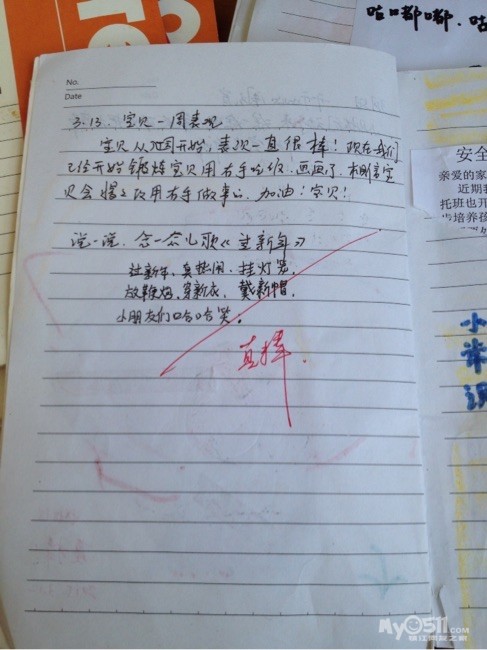 咕嘟嘟，咕
No.
Date
3.13. 宝贝一周表现
宝贝从开始，表现一直很棒！现在我们
已经开始锻炼宝贝用右手吃饭，画画了，相信宝
贝会慢慢改用右手做事的，加油！宝贝！
说一说，念一念儿歌《过新年》
过新年，真热闹，挂灯笼，
放鞭炮，穿新衣，戴新帽，
小朋友们哈哈笑。
真棒.
安全
亲爱的家
近期我
托班也开
步培养孩
小
常
识
My0511.COM